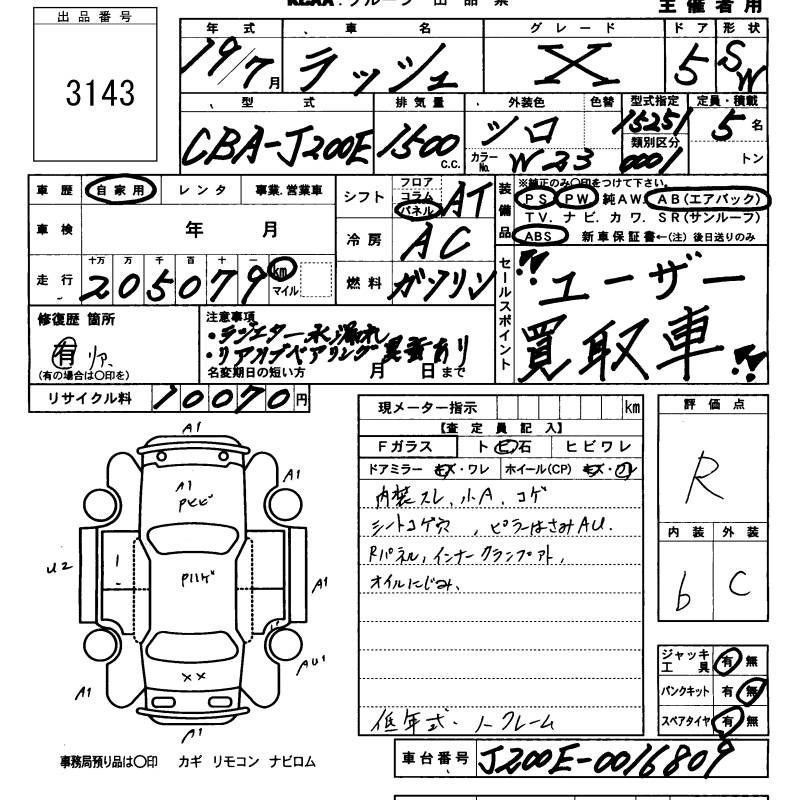 出品番号
3143
主催者用
年式 車名 グレード ドア 形状
19/7月 ラッシュ X 5 SW
型式 排気量 外装色 色替 型式指定 定員・積載
CBA-J200E 1500 C.C. シロ 15251 5名
カラーNo. W23 類別区分 0001 トン
車歴 自家用 レンタ 事業.営業車
車検 年 月
走行 十万 万 千 百 十 一
205079 km マイル
シフト フロア コラム パネル AT
冷房 AC
燃料 ガソリン
装備品 ※純正のみ○印をつけて下さい。
PS PW 純AW. AB(エアバック)
TV. ナビ. カワ. SR(サンルーフ)
ABS 新車保証書←(注)後日送りのみ
セールスポイント
"ユーザー
買取車"
修復歴 箇所
有 リア.
(有の場合は○印を)
注意事項
・ラジエター水漏れ
・リアハブベアリング異音あり
名変期日の短い方 月 日まで
リサイクル料 10070円
現メーター指示 km
【査定員記入】
Fガラス トビ石 ヒビワレ
ドアミラー キズ・ワレ ホイール(CP) キズ・ワレ
内装スレ、小A、コゲ
シートコゲ穴、ピラーはさみAU.
Rパネル,インナークランプアト,
オイルにじみ、
低年式.
フレーム
評価点
R
内装 外装
6 C
ジャッキ工具 有 無
パンクキット 有 無
スペアタイヤ 有 無
A1
A1
A1
A1
U2
A1
AU1
A1
A1
××
事務局預り品は○印 カギ リモコン ナビロム
車台番号 J200E-0016809